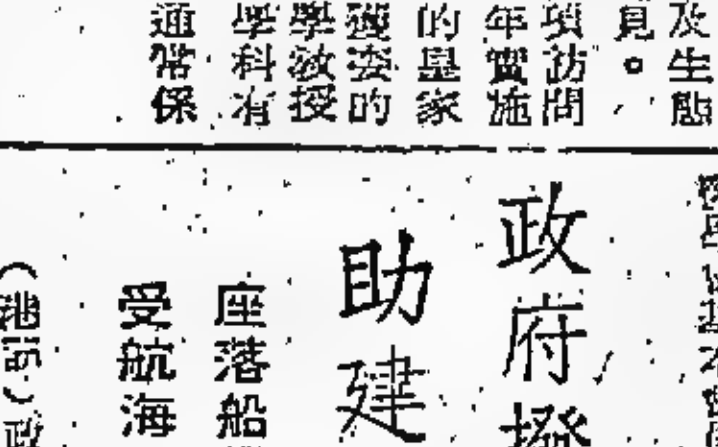 及生態
見。
項訪問
年實施
的皇家
獲委的
學教授
學科有
通常保
政府撥
助建
座落船
受航海
（港訊）政